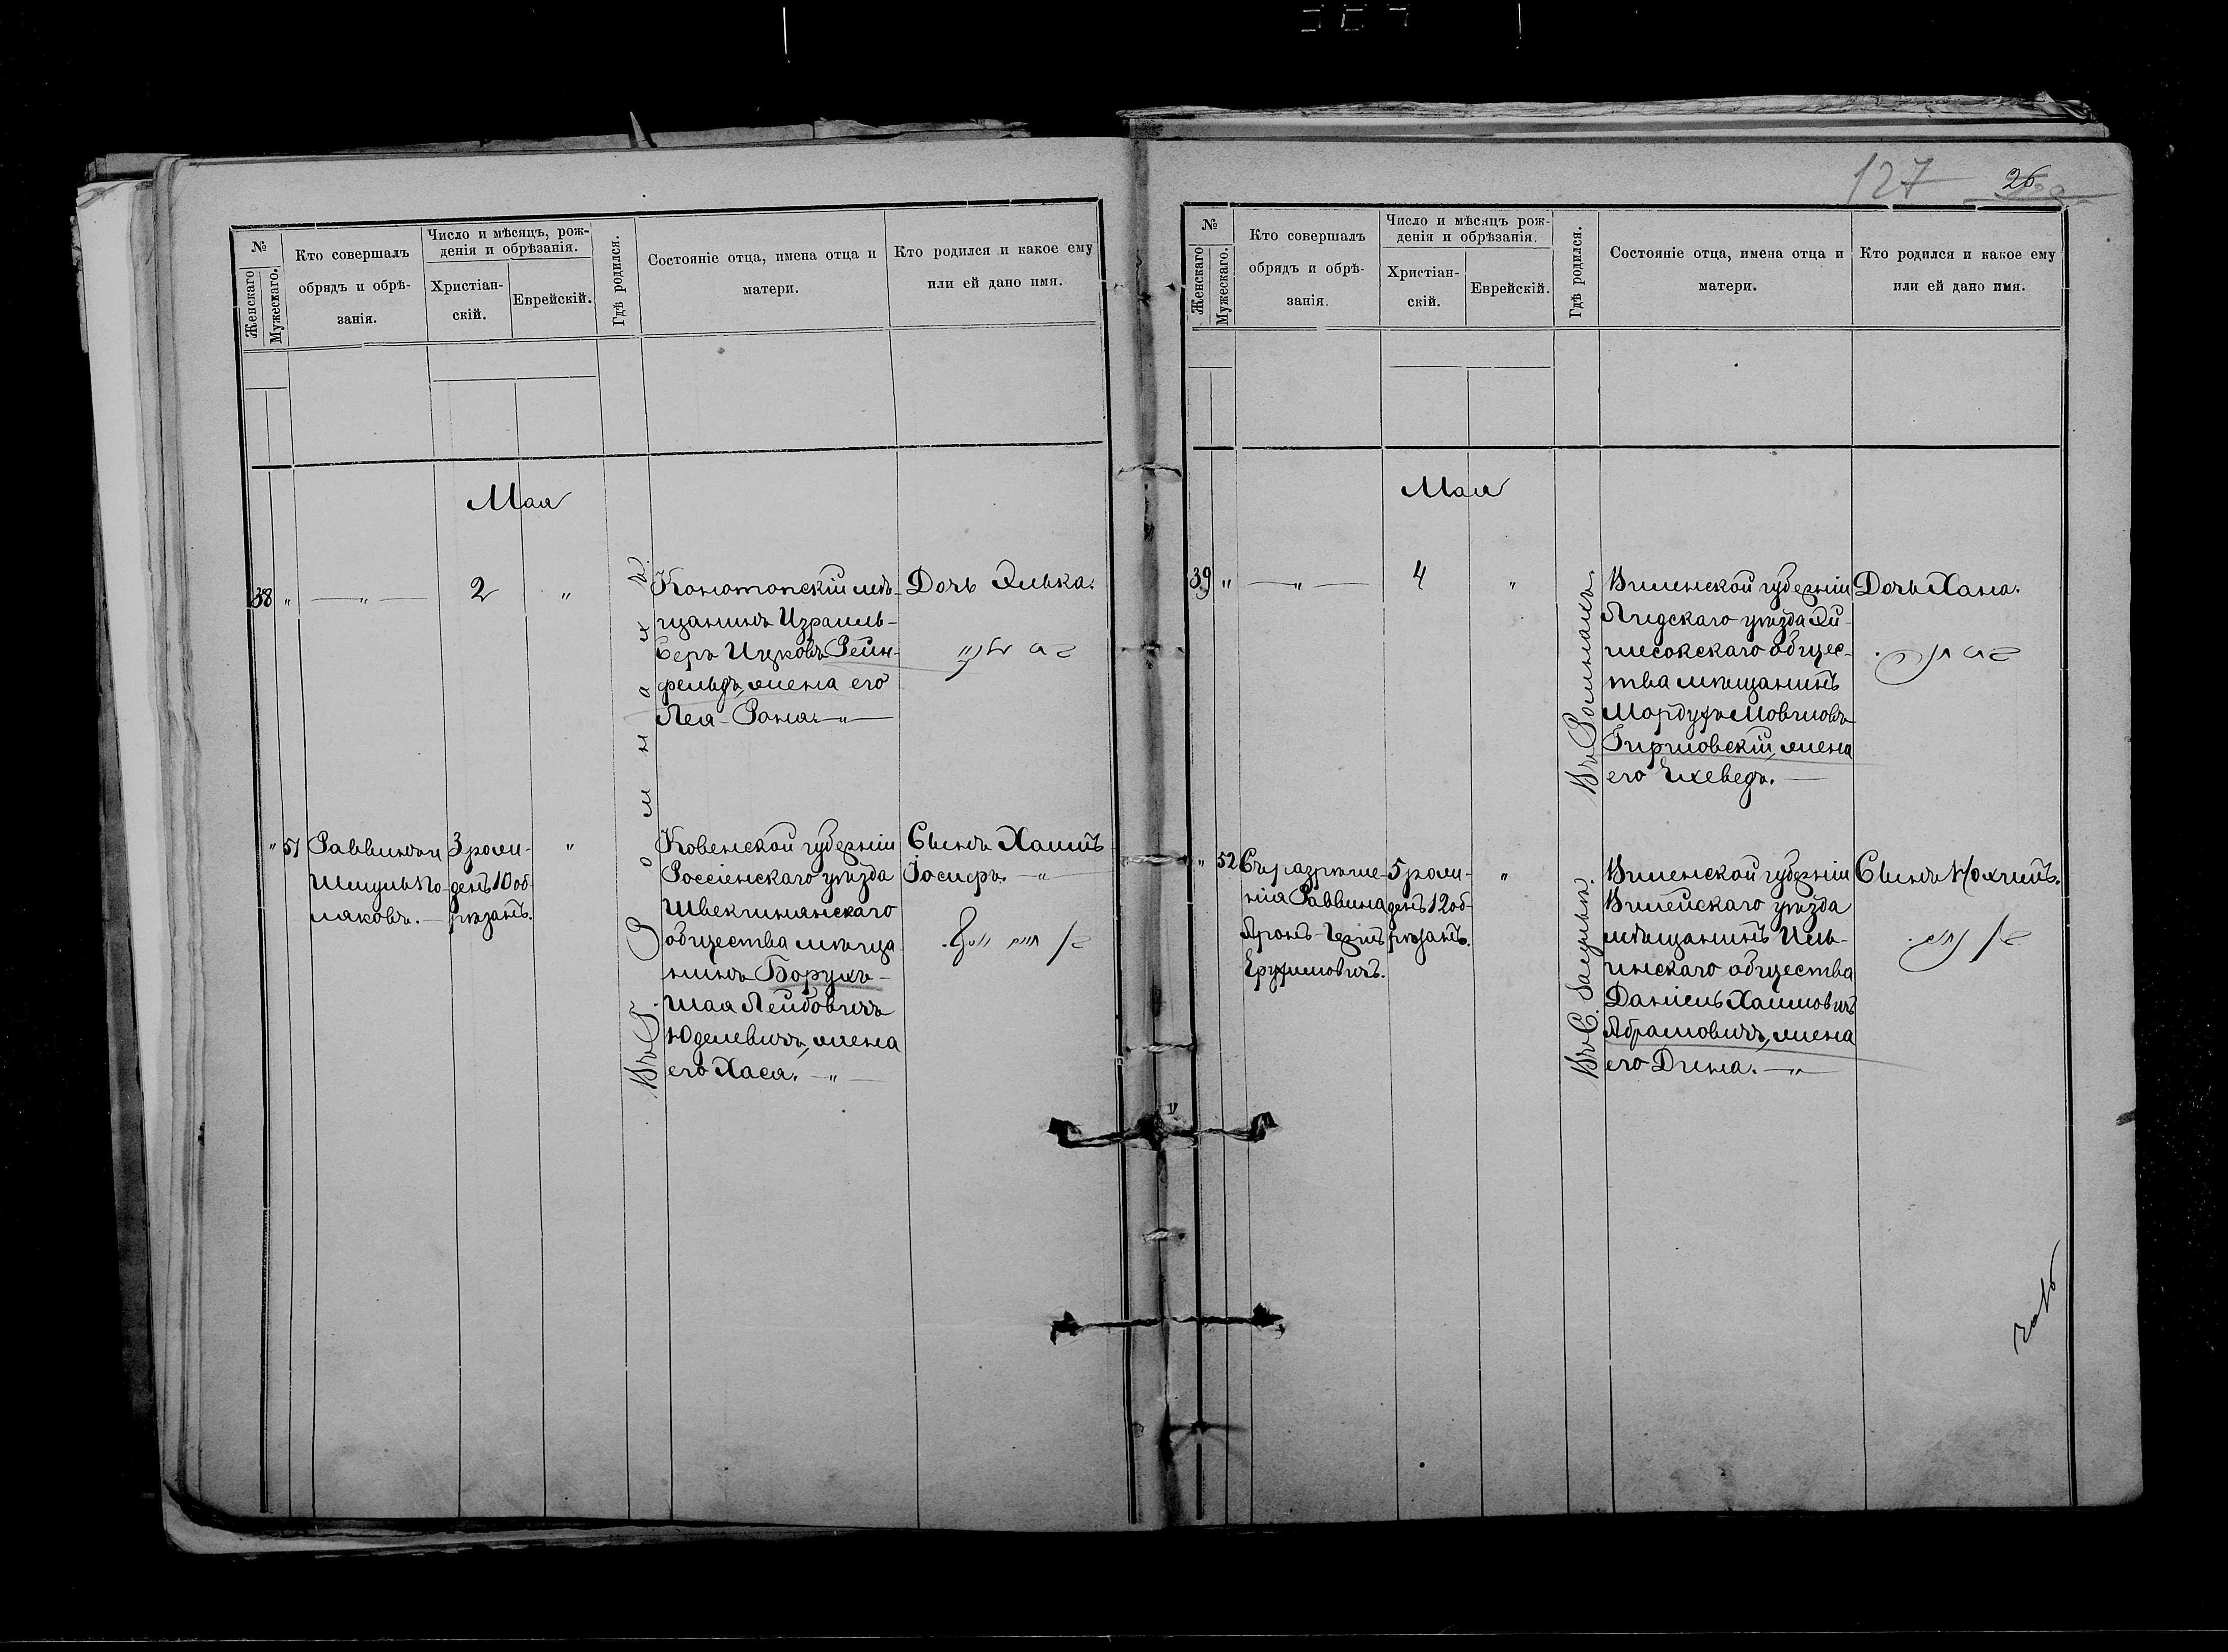 №
Женскаго
Мужескаго.
Кто совершалъ
обрядъ и обрѣ-
занія.
Число и мѣсяцъ, рож-
денія и обрѣзанія.
Христіан-
скій.
Еврейскій.
Гдѣ родился.
Состояніе отца, имена отца и
матери.
Кто родился и какое ему
или ей дано имя.
Мая
38 " —"— 2 "
Въ Г. Ромнахъ.
Конотопскій мѣ-
щанинъ Израиль-
Беръ Ицковъ Рейн-
фельдъ, жена его
Лея-Роня. —"—
Дочь Элька.
" 51
Раввинъ и
Шмуль По-
ляковъ. —
3 рож-
денъ 10 об-
рѣзанъ.
"
Ковенской губерніи
Россіенскаго уѣзда
Швекшнянскаго
общества мѣща
нинъ Борухъ-
Шая Лейбовичъ
Юделевичъ, жена
его Хася. —"—
Сынъ Хаимъ
Іосифъ. —"—
127
26
№
Женскаго
Мужескаго.
Кто совершалъ
обрядъ и обрѣ-
занія.
Число и мѣсяцъ рож-
денія и обрѣзанія.
Христіан-
скій.
Еврейскій.
Гдѣ родился.
Состояніе отца, имена отца и
матери.
Кто родился и какое ему
или ей дано имя.
Мая
39 " —"— 4 "
Въ Ромнахъ.
Виленской губерніи
Лидскаго уѣзда Эй-
шисокскаго общес-
тва мѣщанинъ
Мордухъ Мовшовъ
Гиршовскій, жена
его Ехеведъ. —
Дочь Хана.
" 52
Съ разрѣше-
нія Раввина
Аронъ-
5 рож-
денъ 12 об-
рѣзанъ.
"
Виленской губерніи
Вилейскаго уѣзда
мѣщанинъ Иль-
инскаго общества
Даніель Хаимовичъ
Абрамовичъ, жена
его Дина. —"—
Сынъ Нохимъ.